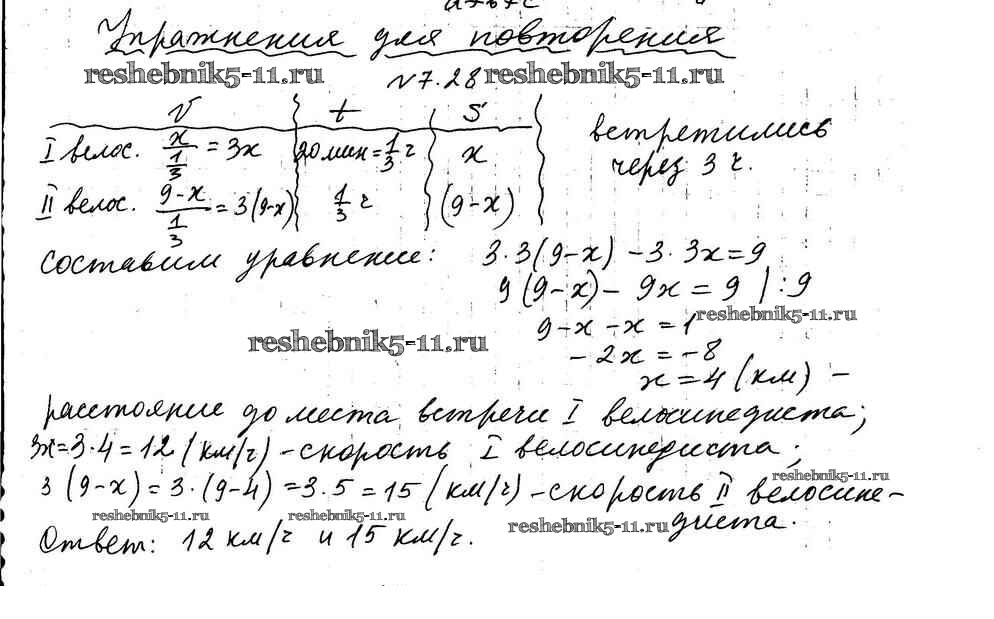 a+b+c
Упражнения для повторения
reshebnik5-11.ru №7.28 reshebnik5-11.ru
V t S
I велос. x/(1/3) = 3x 20 мин = 1/3 ч x
II велос. (9-x)/(1/3) = 3(9-x) 1/3 ч (9-x)
встретились
через 3 ч.
составим уравнение: 3·3(9-x) - 3·3x = 9
9(9-x) - 9x = 9 | :9
reshebnik5-11.ru
9 - x - x = 1
reshebnik5-11.ru
-2x = -8
x = 4 (км) -
расстояние до места встречи I велосипедиста;
3x = 3·4 = 12 (км/ч) - скорость I велосипедиста;
reshebnik5-11.ru
3(9-x) = 3·(9-4) = 3·5 = 15 (км/ч) - скорость II велосипе-
reshebnik5-11.ru reshebnik5-11.ru reshebnik5-11.ru
диста.
Ответ: 12 км/ч и 15 км/ч.